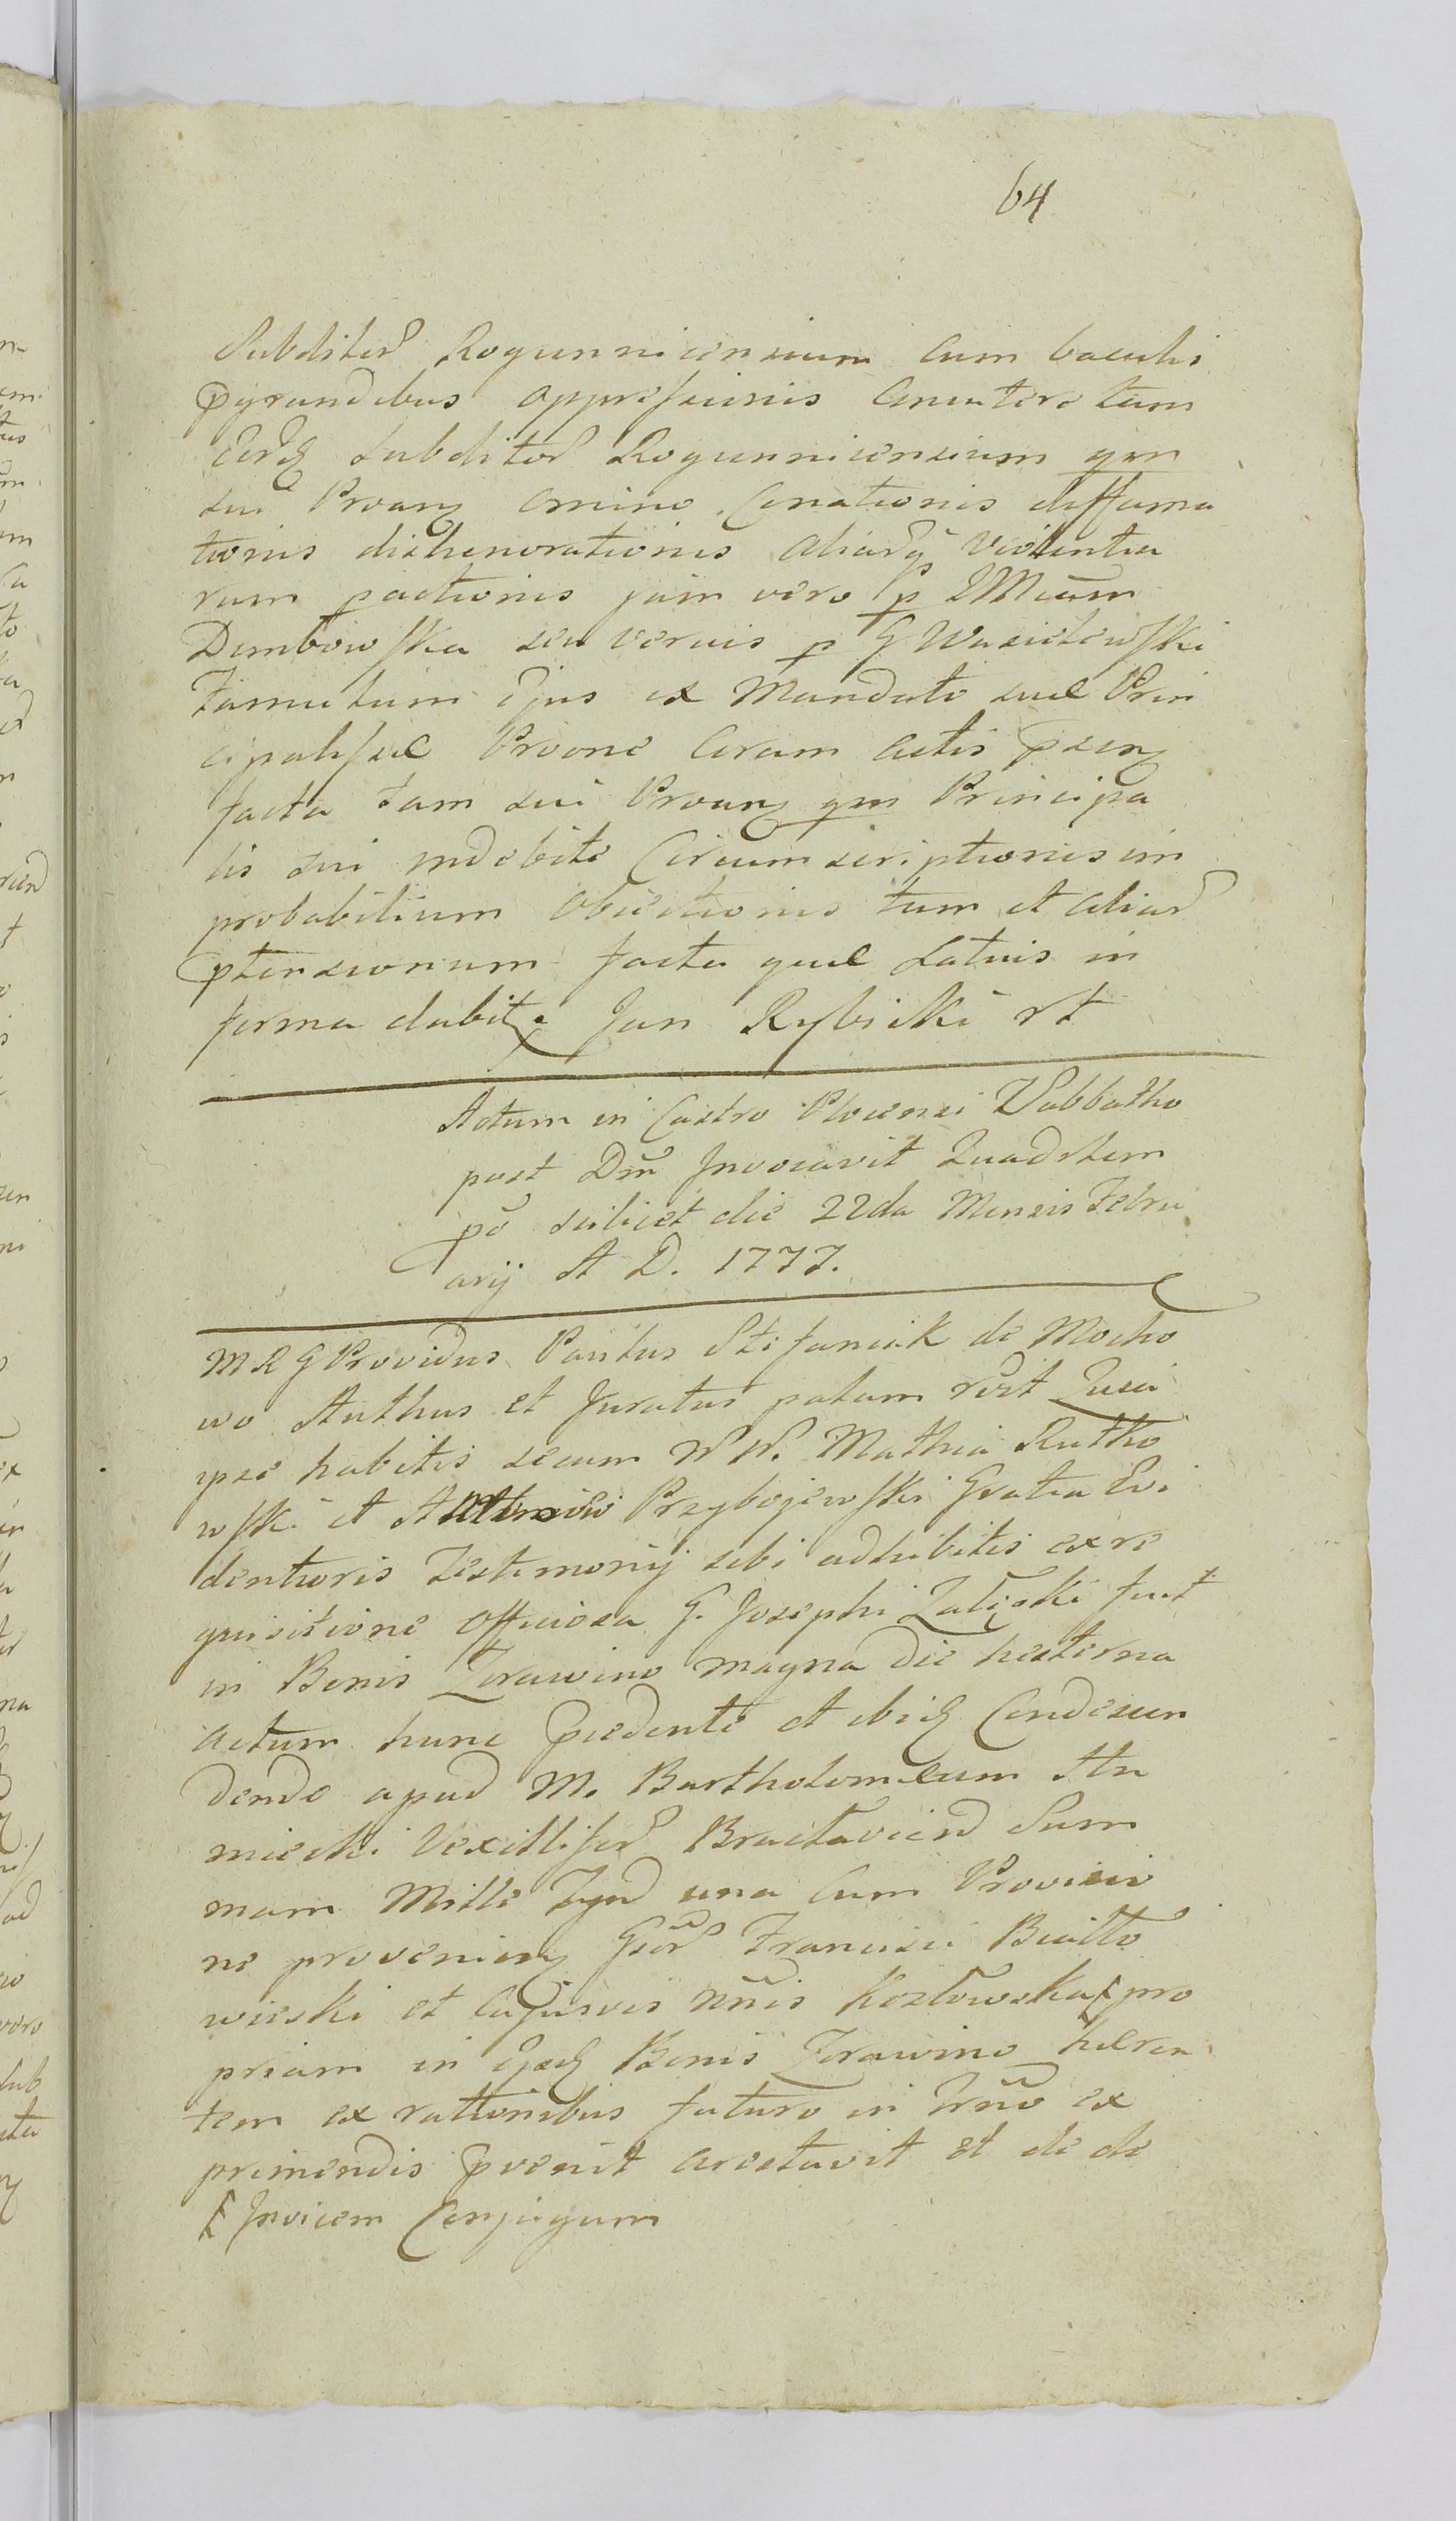 64
Subditor Rogunnicensium Cum baculis
pgrandibus oppressionis Conuitore tum
eorq subditor Rogunnicensium qm
sui Proanz omino Conationis diffama
tionis dishonorationis aliarq Violentia
rum pactionis jam vero p M
Dembowska seu verius p G Wasielewski
Famulum ejus ex Mandato suae Prin
cipalissae Proone Coram actis psenz
facta tam sui Proanz qm Principa
lis sui indebite Circumscriptionis im
probabilium Obiectionis tum et aliar
ptensionum facta quae Latius in
forma dabitz Jan Rybicki rt
Actum in Castro Plocensi Sabbatho
post Dnm Invocavit Quadrlem
po scilicet die 22da Mensis Febru
arij A D. 1777.
M R G Providus Paulus Stefaniak de Mocho
wo Authus et Juratus palam rvit Quia
ipse habitis secum N N. Mathia Rutko
wski et Przybojewski Gratia Evi
dentioris Testimonij sibi adhibitis ex re
quisitione officiosa G. Josephi Zaleski fuit
in Bonis Zorawino magna die hesterna
actum hunc pcedente et ibiq Condescen
dendo apud M. Bartholomaeum
miecki Vexilliferr Braclavien Sum
mam Mille Tynf una Cum Provisio
ne provenienz Gsor Francisci Bialto
wieski et Cujusvis nnis Kozlowska pro
priam in ijsdq Bonis Zorawino haeren
tem ex rationibus futuro in Trno ex
primendis pvenit arestavit et de de
Invicem Conjugum